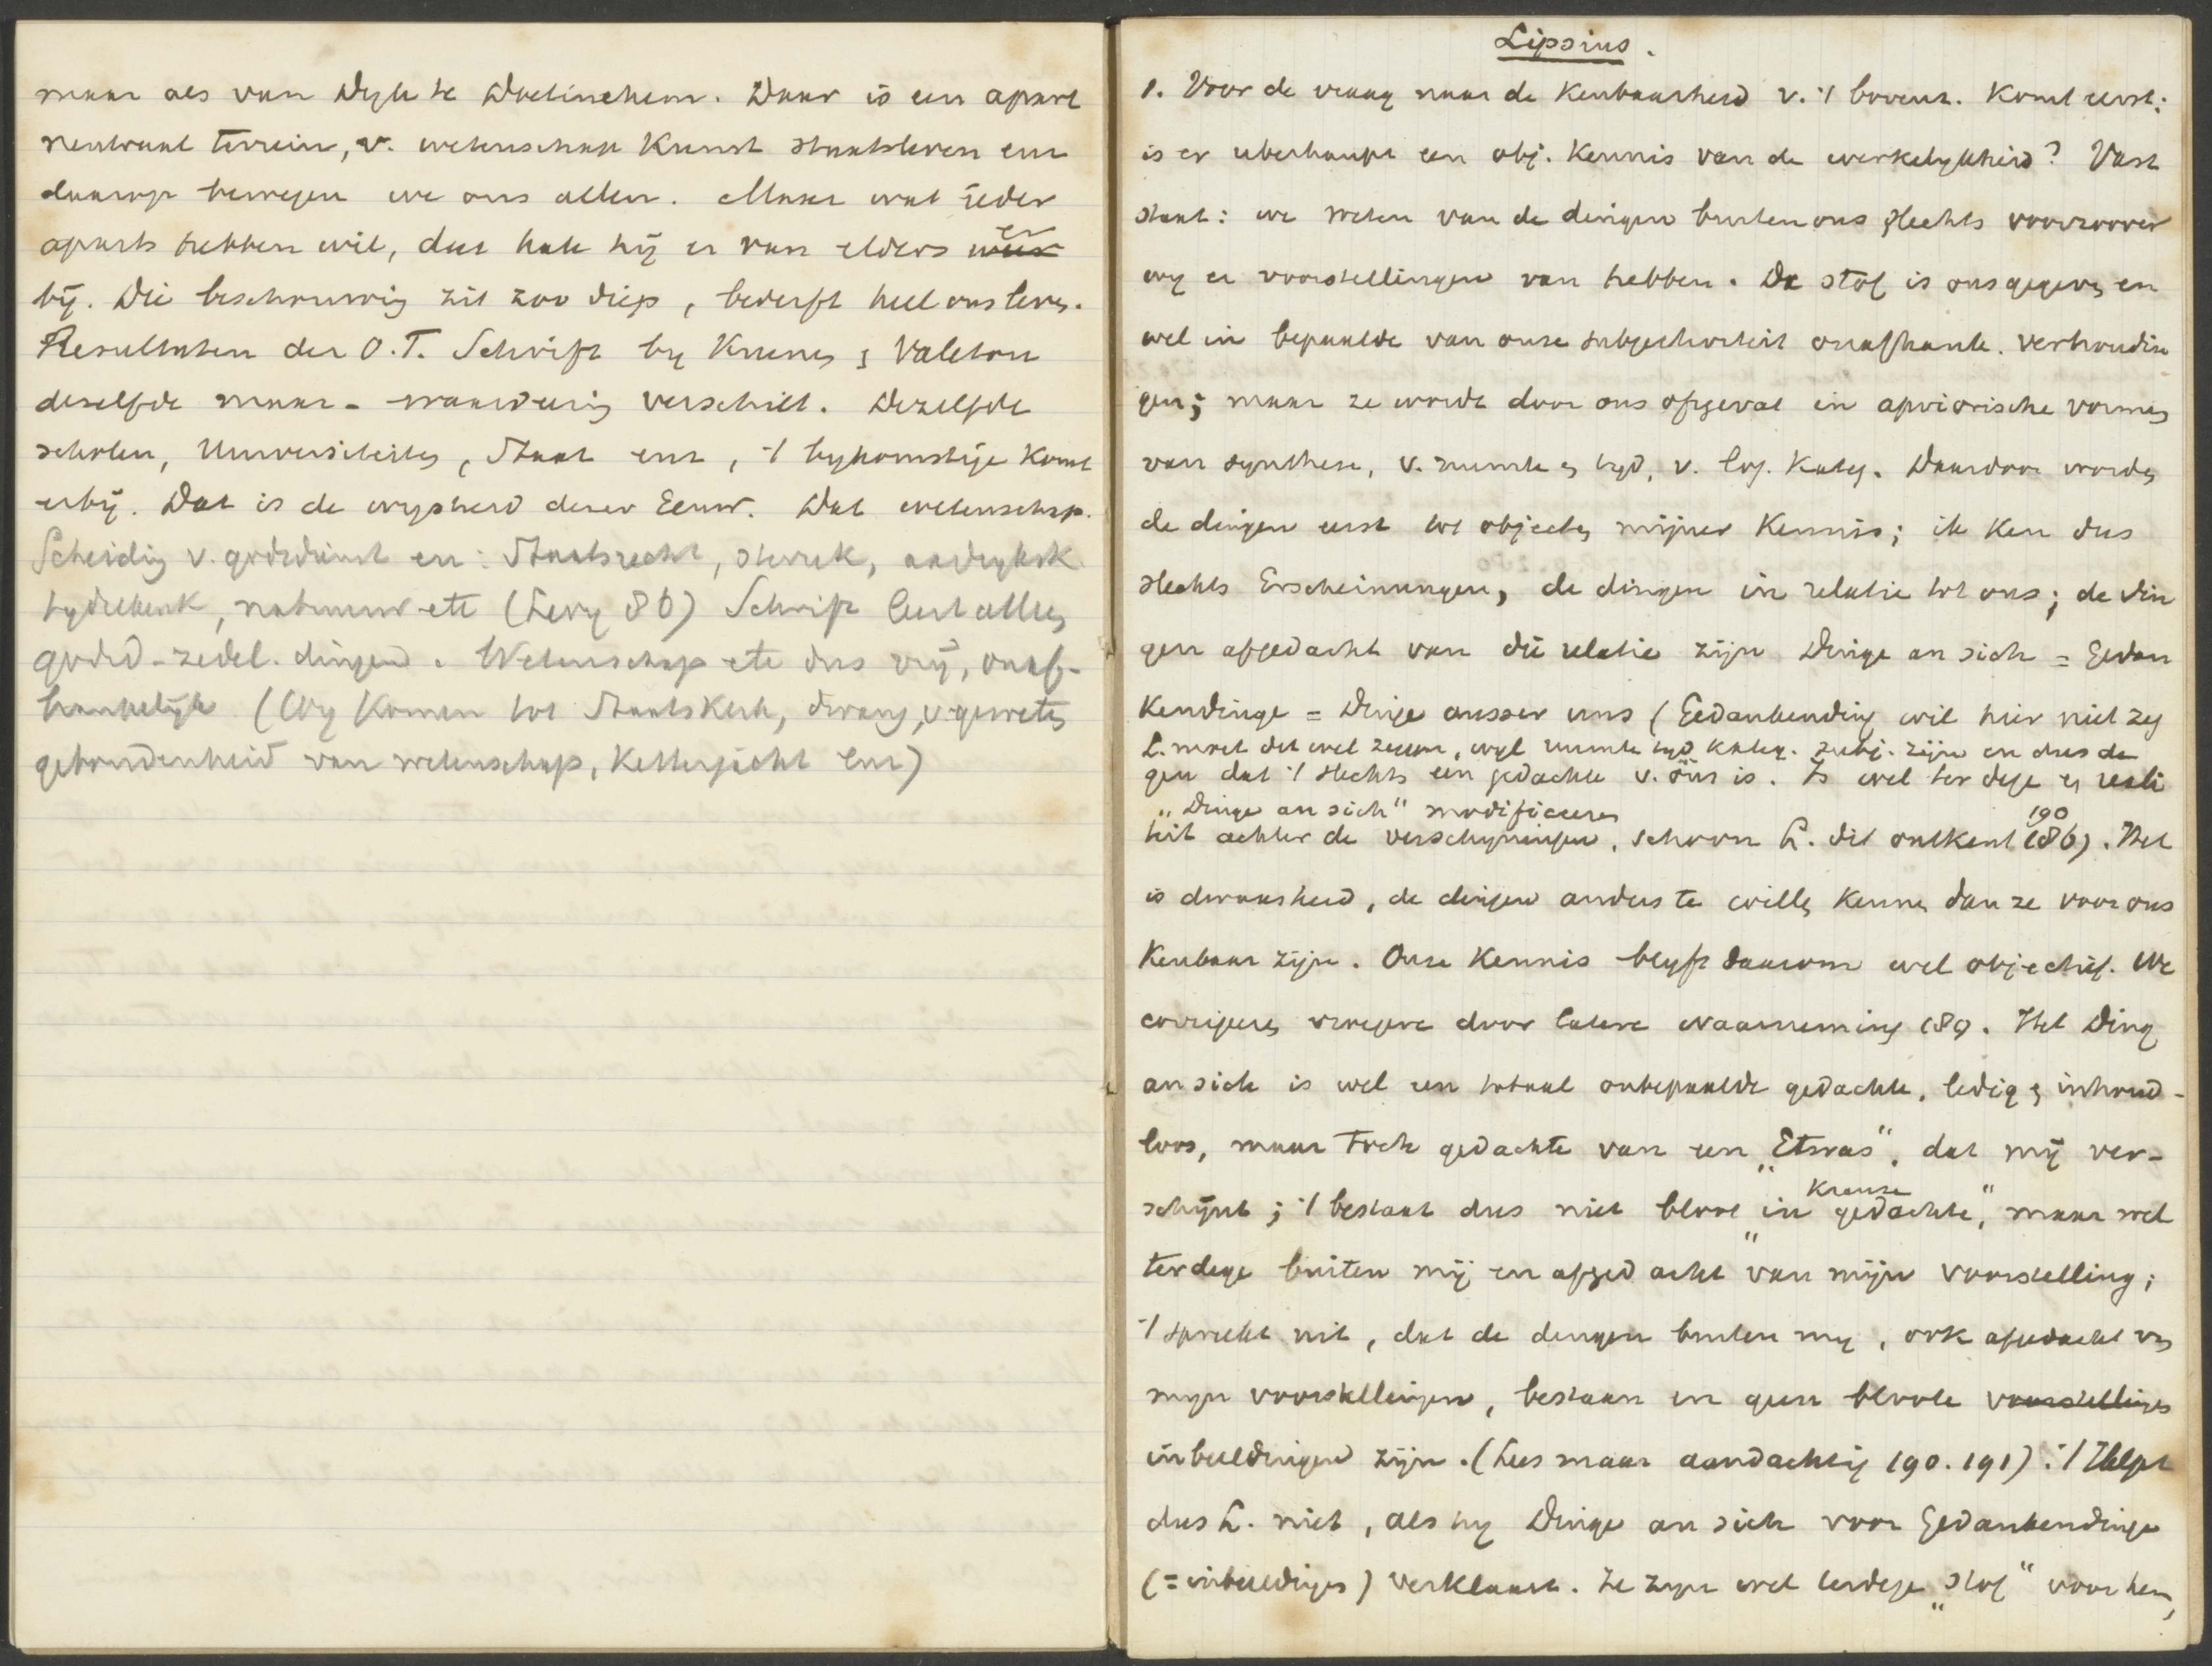 maar als van Dyk te Doetinchem. Daar is een apart
neutraal terrein, v. wetenschap Kunst staatsleven enz
daarop bewegen we ons allen. Maar wat ieder
aparts hebben wil, dat hale hij er van elders er
bij. Die beschouwing zit zoo diep, bederft heel ons leven.
Resultaten der O.T. Schrift by Kuenen & Valeton
dezelfde maar - waardeering verschilt. Dezelfde
scholen, Universiteiten, Staat enz, 't bykomstige komt
erbij. Dat is de wysheid dezer Eeuw. Dat wetenschap.
Scheiding v. godsdienst en: Staatsrecht, sterrek, aardryksk
tydrekenk, natuurw etc (Levy 86) Schrift leert alleen
godsd-zedel. dingen. Wetenschap etc dus vrij, onaf-
hankelijk (Wy komen tot Staatskerk, dwang, v. geweten
gebondenheid van wetenschap, Ketterjacht enz)
Lipsius.
1. Voor de vraag naar de Kenbaarheid v. 't bovenz. komt eerst:
is er uberhaupt een obj. Kennis van de werkelykheid? Vast
staat: we weten van de dingen buiten ons slechts voorzoover
wy er voorstellingen van hebben. De stof is ons gegeven en
wel in bepaalde van onze subjectiviteit onafhank. verhoudin
gen; maar ze wordt door ons opgevat in apriorische vormen
van synthese, v. ruimte en tyd, v. log. Kateg. Daardoor worden
de dingen eerst tot objecten mijner Kennis; ik ken dus
slechts Erscheinungen, de dingen in relatie tot ons; de din
gen afgedacht van die relatie zijn Dinge an sich = Gedan
kendinge = Dinge ausser uns (Gedankending wil hier niet zeg
L. moet dit wel zeggen, wyl ruimte tyd kateg. subj. zijn en dus de
gen dat 't slechts een gedachte v. ons is. Is wel ter dege en reali
"Dinge an sich" modificeeren
teit achter de verschyningen, schoon L. dit ontkent 186). Het
190
is dwaasheid, de dingen anders te willen kennen dan ze voor ons
Kenbaar zijn. Onze Kennis blyft daarom wel objectief. We
corrigeeren vroegere door latere waarneming 189. Het Ding
an sich is wel een totaal onbepaalde gedachte, ledig en inhoud-
loos, maar toch gedachte van een "Etwas", dat mij ver-
schijnt; 't bestaat dus niet bloot "in gedachte", maar wel
Krause
terdege buiten mij en afgedacht "van mijn voorstelling;
't spreekt uit, dat de dingen buiten my, ook afgedacht van
myn voorstellingen, bestaan en geen bloote voorstellingen
inbeeldingen zijn. (Lees maar aandachtig 190. 191). 't Helpt
dus L. niet, als hy Dinge an sich voor Gedankendinge
(= inbeeldingen) verklaart. Ze zyn wel terdege "stof" voor hem,